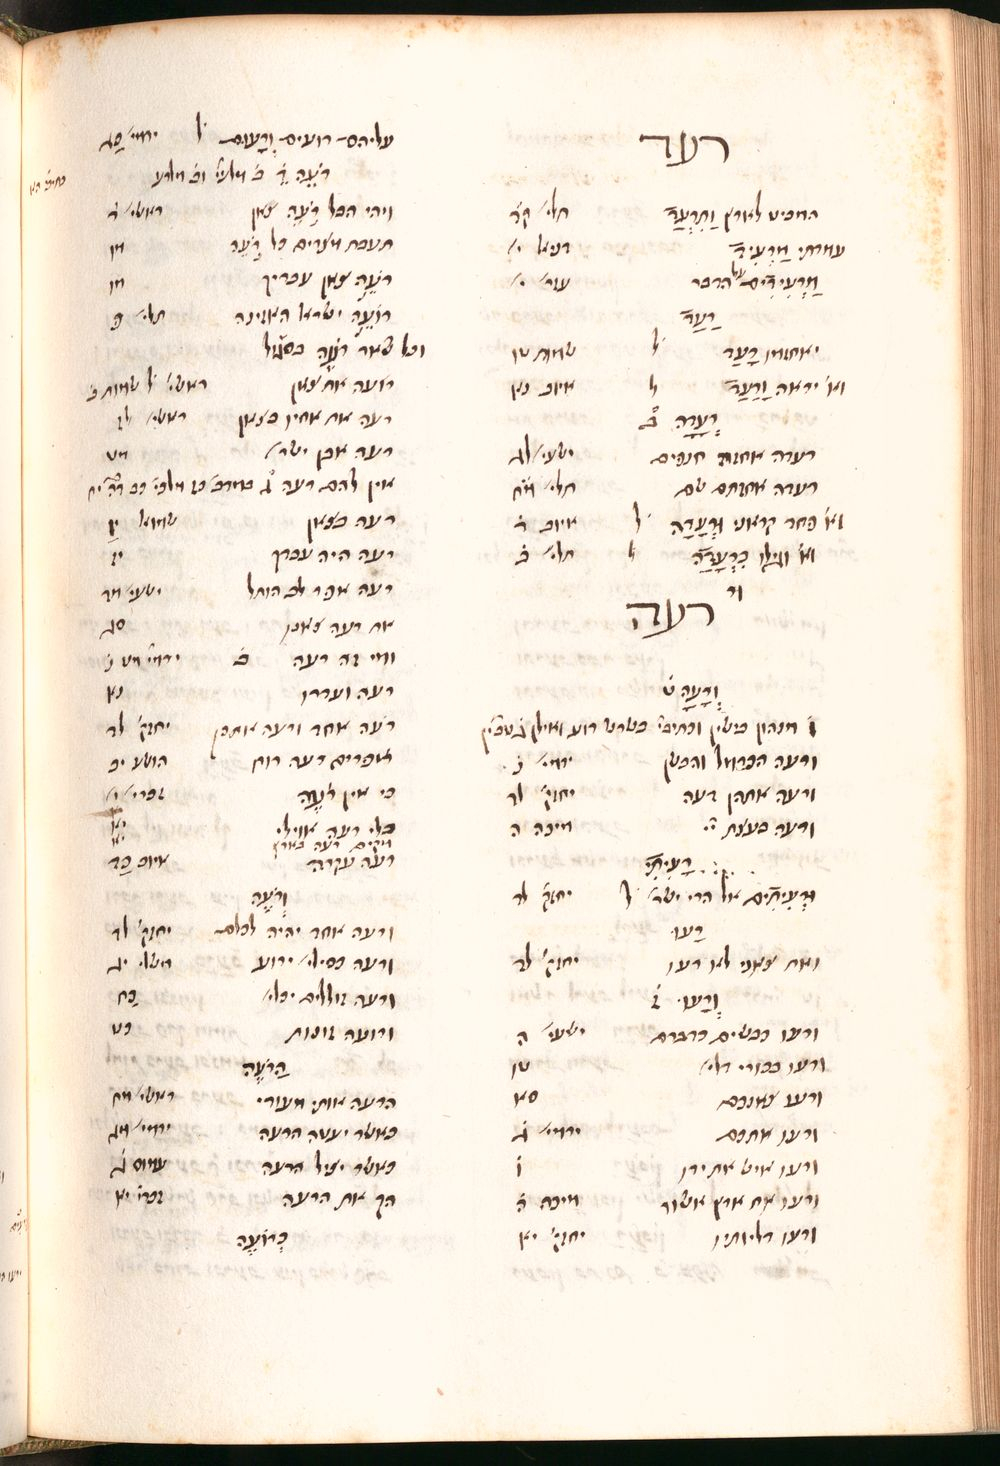 רעד
המביט לארץ וַתִרְעָד תלי׳ קד
עמדתי מַרְעִיד דניא׳ י׳
מַרְעִידִים על הדבר עזר׳ י׳
רַעַד
יאחזמו רָעַד ל׳ שמות טו
וא׳ יראה וָרַעַד ל׳ תלי׳
רְעָדָה
רעדה אחזה חנפים ישעי׳ לג
רעדה אחזתם שם תלי׳ מח
וא׳ פחד קראני וּרְעָדָה ל׳ איוב ד
וא׳ וגילו בִּרְעָדָה ל׳ תלי׳ ב
רעה
וְרָעָה
ורעה הכרמל והבשן ירמי׳ נ
ורעה אתהן רעה יחזק׳ לד
ורעה בעצת יי׳ מיכה ה
רָעִיתִי
וּרְעִיתִים אל הרי ישר׳ ל׳ יחזק׳ לד
רָעוּ
ואת צאני לא רעו יחזק׳ לד
וְרָעוּ
ורעו כבשים כדברם ישעי׳ ה
ורעו בכורי דלי׳
ורעו צאנכם סא
ורעו אתכם ירמי׳ ג
ורעו איש את ידו ו
ורעו את ארץ אשור מיכה ה
ורעו דליותיו יחזק׳ יא
עליהם רועים וְרָעוּם ל׳ ירמי׳
רֹעֵה
ויהי הבל רֹעֵה צאן ראשי׳ ד
תעבת מצרים כל רֹעֵה מו
רֹעֵה צאן עבדיך מז
רֹעֵה ישראל האזינה תלי׳ פ
וכל שאר רֹעֶה בסגול
רֹעה את צאן ראשי׳ ל׳ שמות ב
רעה את אחיו בצאן ראשי׳ לז
רעה אבן ישר׳ מט
אין להם רעה
רעה בצאן שמואל יו
רעה היה עבדך יז
רעה אפר לב הותל ישעי׳ מד
את רעה צאנו סג
ומי זה רעה ב ירמי׳ מט נ
רעה ועדרו נא
רעה אחד ורעה אתהן יחזק׳ לד
אפרים רעה רוח הושע יב
כי אין רֹעֶה זכרי׳ י׳
כלי רעה אוילי יא
מקים רעה בארץ
רעה עקרה איוב כד
וְרֹעֶה
ורעה אחד יהיה לכלם יחזק׳ לז
ורעה כסילי׳ ירוע משלי יג
ורעה זוללים יכלי׳ כח
ורועה זונות כט
הָרֹעֶה
הרעה אותי מעודי ראשי׳ מח
כאשר יעטה הרעה ירמי׳ מג
כאשר יציל הרעה עמוס ג
הך את הרעה זכרי׳ יא
כְּרֹועֶה